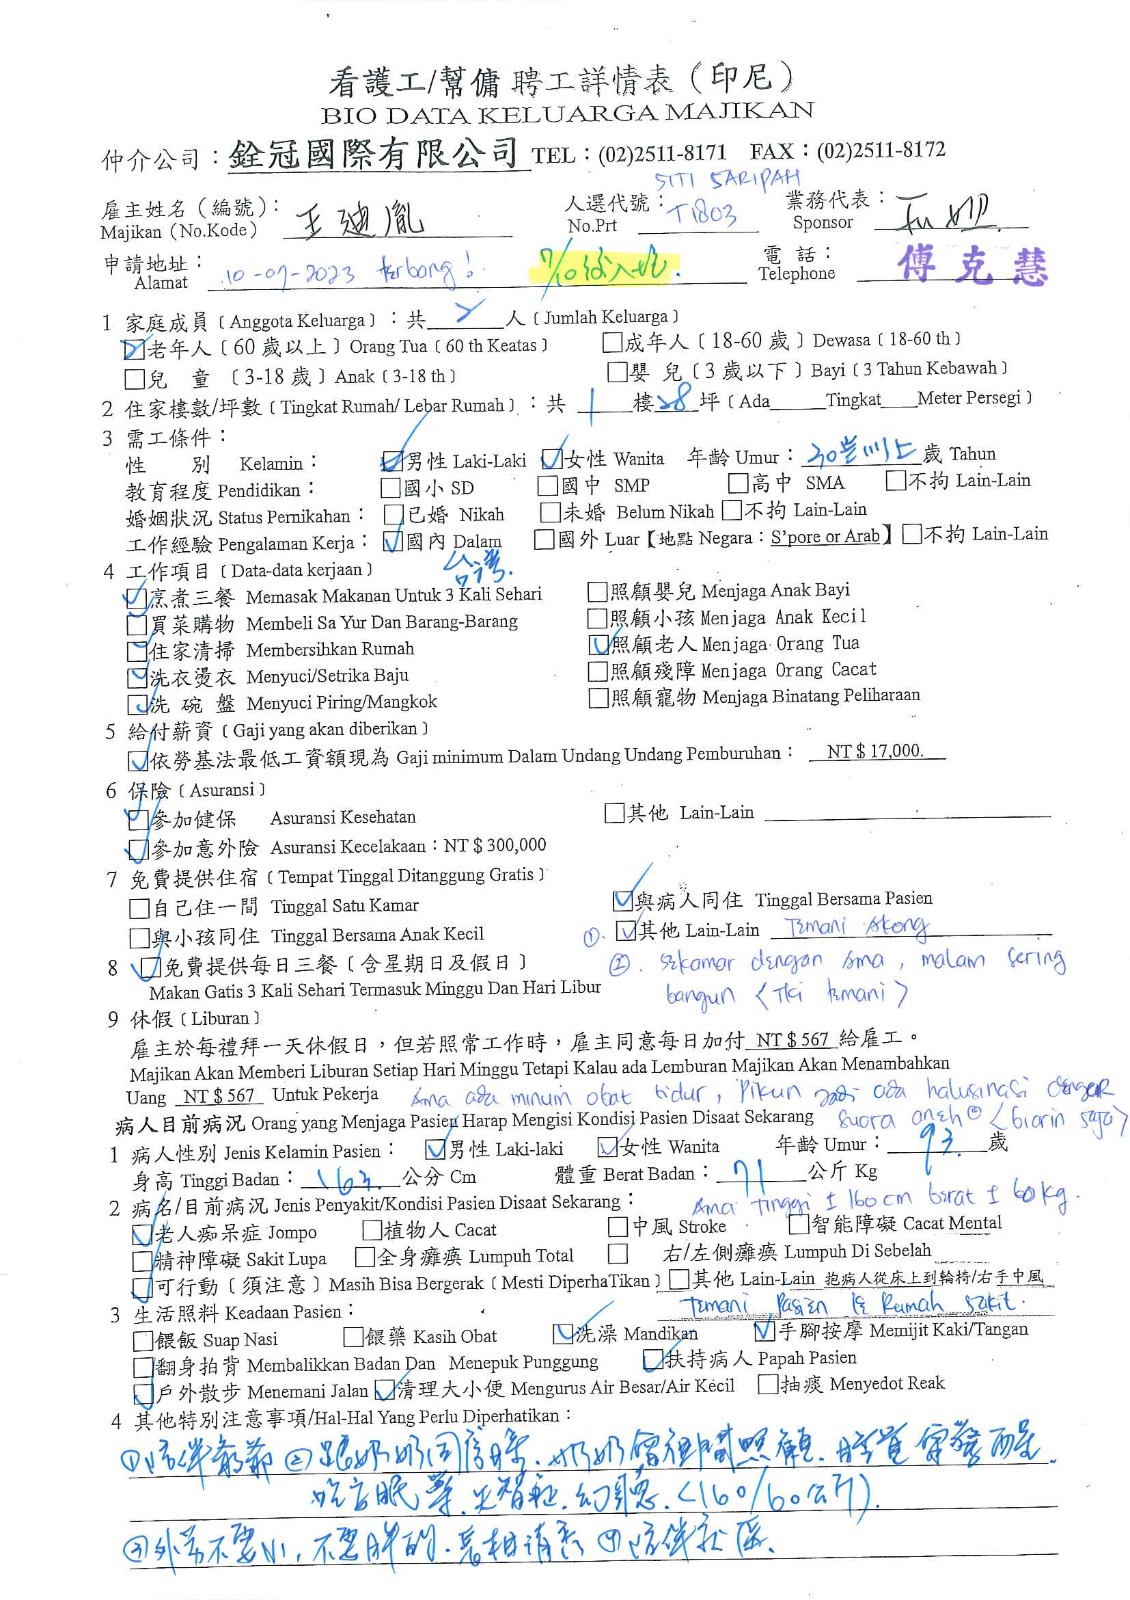 看護工/幫傭 聘工詳情表（印尼）
BIO DATA KELUARGA MAJIKAN
仲介公司：銓冠國際有限公司 TEL：(02)2511-8171 FAX：(02)2511-8172
SITI SARIPAH
雇主姓名（編號）： 王迪胤 人選代號： T1803 業務代表：
Majikan (No.Kode) No.Prt Sponsor
申請地址： 10-07-2023 terbang! 7/10 電話： 傅克慧
Alamat Telephone
1 家庭成員〔Anggota Keluarga〕：共 2 人〔Jumlah Keluarga〕
☑老年人〔60歲以上〕Orang Tua〔60 th Keatas〕 □成年人〔18-60歲〕Dewasa〔18-60 th〕
□兒 童〔3-18歲〕Anak〔3-18 th〕 □嬰 兒〔3歲以下〕Bayi〔3 Tahun Kebawah〕
2 住家樓數/坪數〔Tingkat Rumah/ Lebar Rumah〕：共 1 樓 28 坪〔Ada____Tingkat____Meter Persegi〕
3 需工條件：
性 別 Kelamin： ☑男性 Laki-Laki ☑女性 Wanita 年齡 Umur：30歲以上 歲 Tahun
教育程度 Pendidikan： □國小 SD □國中 SMP □高中 SMA □不拘 Lain-Lain
婚姻狀況 Status Pernikahan： □已婚 Nikah □未婚 Belum Nikah □不拘 Lain-Lain
工作經驗 Pengalaman Kerja： ☑國內 Dalam □國外 Luar【地點 Negara：S'pore or Arab】□不拘 Lain-Lain
台灣.
4 工作項目〔Data-data kerjaan〕
☑烹煮三餐 Memasak Makanan Untuk 3 Kali Sehari □照顧嬰兒 Menjaga Anak Bayi
☑買菜購物 Membeli Sa Yur Dan Barang-Barang □照顧小孩 Menjaga Anak Kecil
☑住家清掃 Membersihkan Rumah ☑照顧老人 Menjaga Orang Tua
☑洗衣燙衣 Menyuci/Setrika Baju □照顧殘障 Menjaga Orang Cacat
☑洗 碗 盤 Menyuci Piring/Mangkok □照顧寵物 Menjaga Binatang Peliharaan
5 給付薪資〔Gaji yang akan diberikan〕
☑依勞基法最低工資額現為 Gaji minimum Dalam Undang Undang Pemburuhan： NT$ 17,000.
6 保險〔Asuransi〕
☑參加健保 Asuransi Kesehatan □其他 Lain-Lain
☑參加意外險 Asuransi Kecelakaan：NT$ 300,000
7 免費提供住宿〔Tempat Tinggal Ditanggung Gratis〕
□自己住一間 Tinggal Satu Kamar ☑與病人同住 Tinggal Bersama Pasien
□與小孩同住 Tinggal Bersama Anak Kecil ①. ☑其他 Lain-Lain Temani Akong
8 ☑免費提供每日三餐〔含星期日及假日〕 ②. Sekamar dengan Ama, malam sering
Makan Gatis 3 Kali Sehari Termasuk Minggu Dan Hari Libur bangun <TKI temani>
9 休假〔Liburan〕
雇主於每禮拜一天休假日，但若照常工作時，雇主同意每日加付 NT$ 567 給雇工。
Majikan Akan Memberi Liburan Setiap Hari Minggu Tetapi Kalau ada Lemburan Majikan Akan Menambahkan
Uang NT$ 567 Untuk Pekerja Ama ada minum obat tidur, Pikun jadi ada halusinasi dengar
病人目前病況 Orang yang Menjaga Pasien Harap Mengisi Kondisi Pasien Disaat Sekarang suara aneh² <biarin saja>
1 病人性別 Jenis Kelamin Pasien： ☑男性 Laki-laki ☑女性 Wanita 年齡 Umur： 93. 歲
身高 Tinggi Badan： 163. 公分 Cm 體重 Berat Badan： 71 公斤 Kg
2 病名/目前病況 Jenis Penyakit/Kondisi Pasien Disaat Sekarang： Ama Tinggi ± 160 cm berat ± 60 kg.
☑老人痴呆症 Jompo □植物人 Cacat □中風 Stroke □智能障礙 Cacat Mental
☑精神障礙 Sakit Lupa □全身癱瘓 Lumpuh Total □ 右/左側癱瘓 Lumpuh Di Sebelah
☑可行動〔須注意〕Masih Bisa Bergerak〔Mesti DiperhaTikan〕□其他 Lain-Lain 抱病人從床上到輪椅/右手中風
3 生活照料 Keadaan Pasien： Temani Pasien ke Rumah Sakit.
□餵飯 Suap Nasi □餵藥 Kasih Obat ☑洗澡 Mandikan ☑手腳按摩 Memijit Kaki/Tangan
☑翻身拍背 Membalikkan Badan Dan Menepuk Punggung ☑扶持病人 Papah Pasien
☑戶外散步 Menemani Jalan ☑清理大小便 Mengurus Air Besar/Air Kecil □抽痰 Menyedot Reak
4 其他特別注意事項/Hal-Hal Yang Perlu Diperhatikan：
①陪伴爺爺 ②跟奶奶同房睡. 奶奶 夜間照顧.
吃安眠藥. 失智症. 幻聽. <160/60公斤>.
③外勞不要小, 不要胖的. ④陪伴